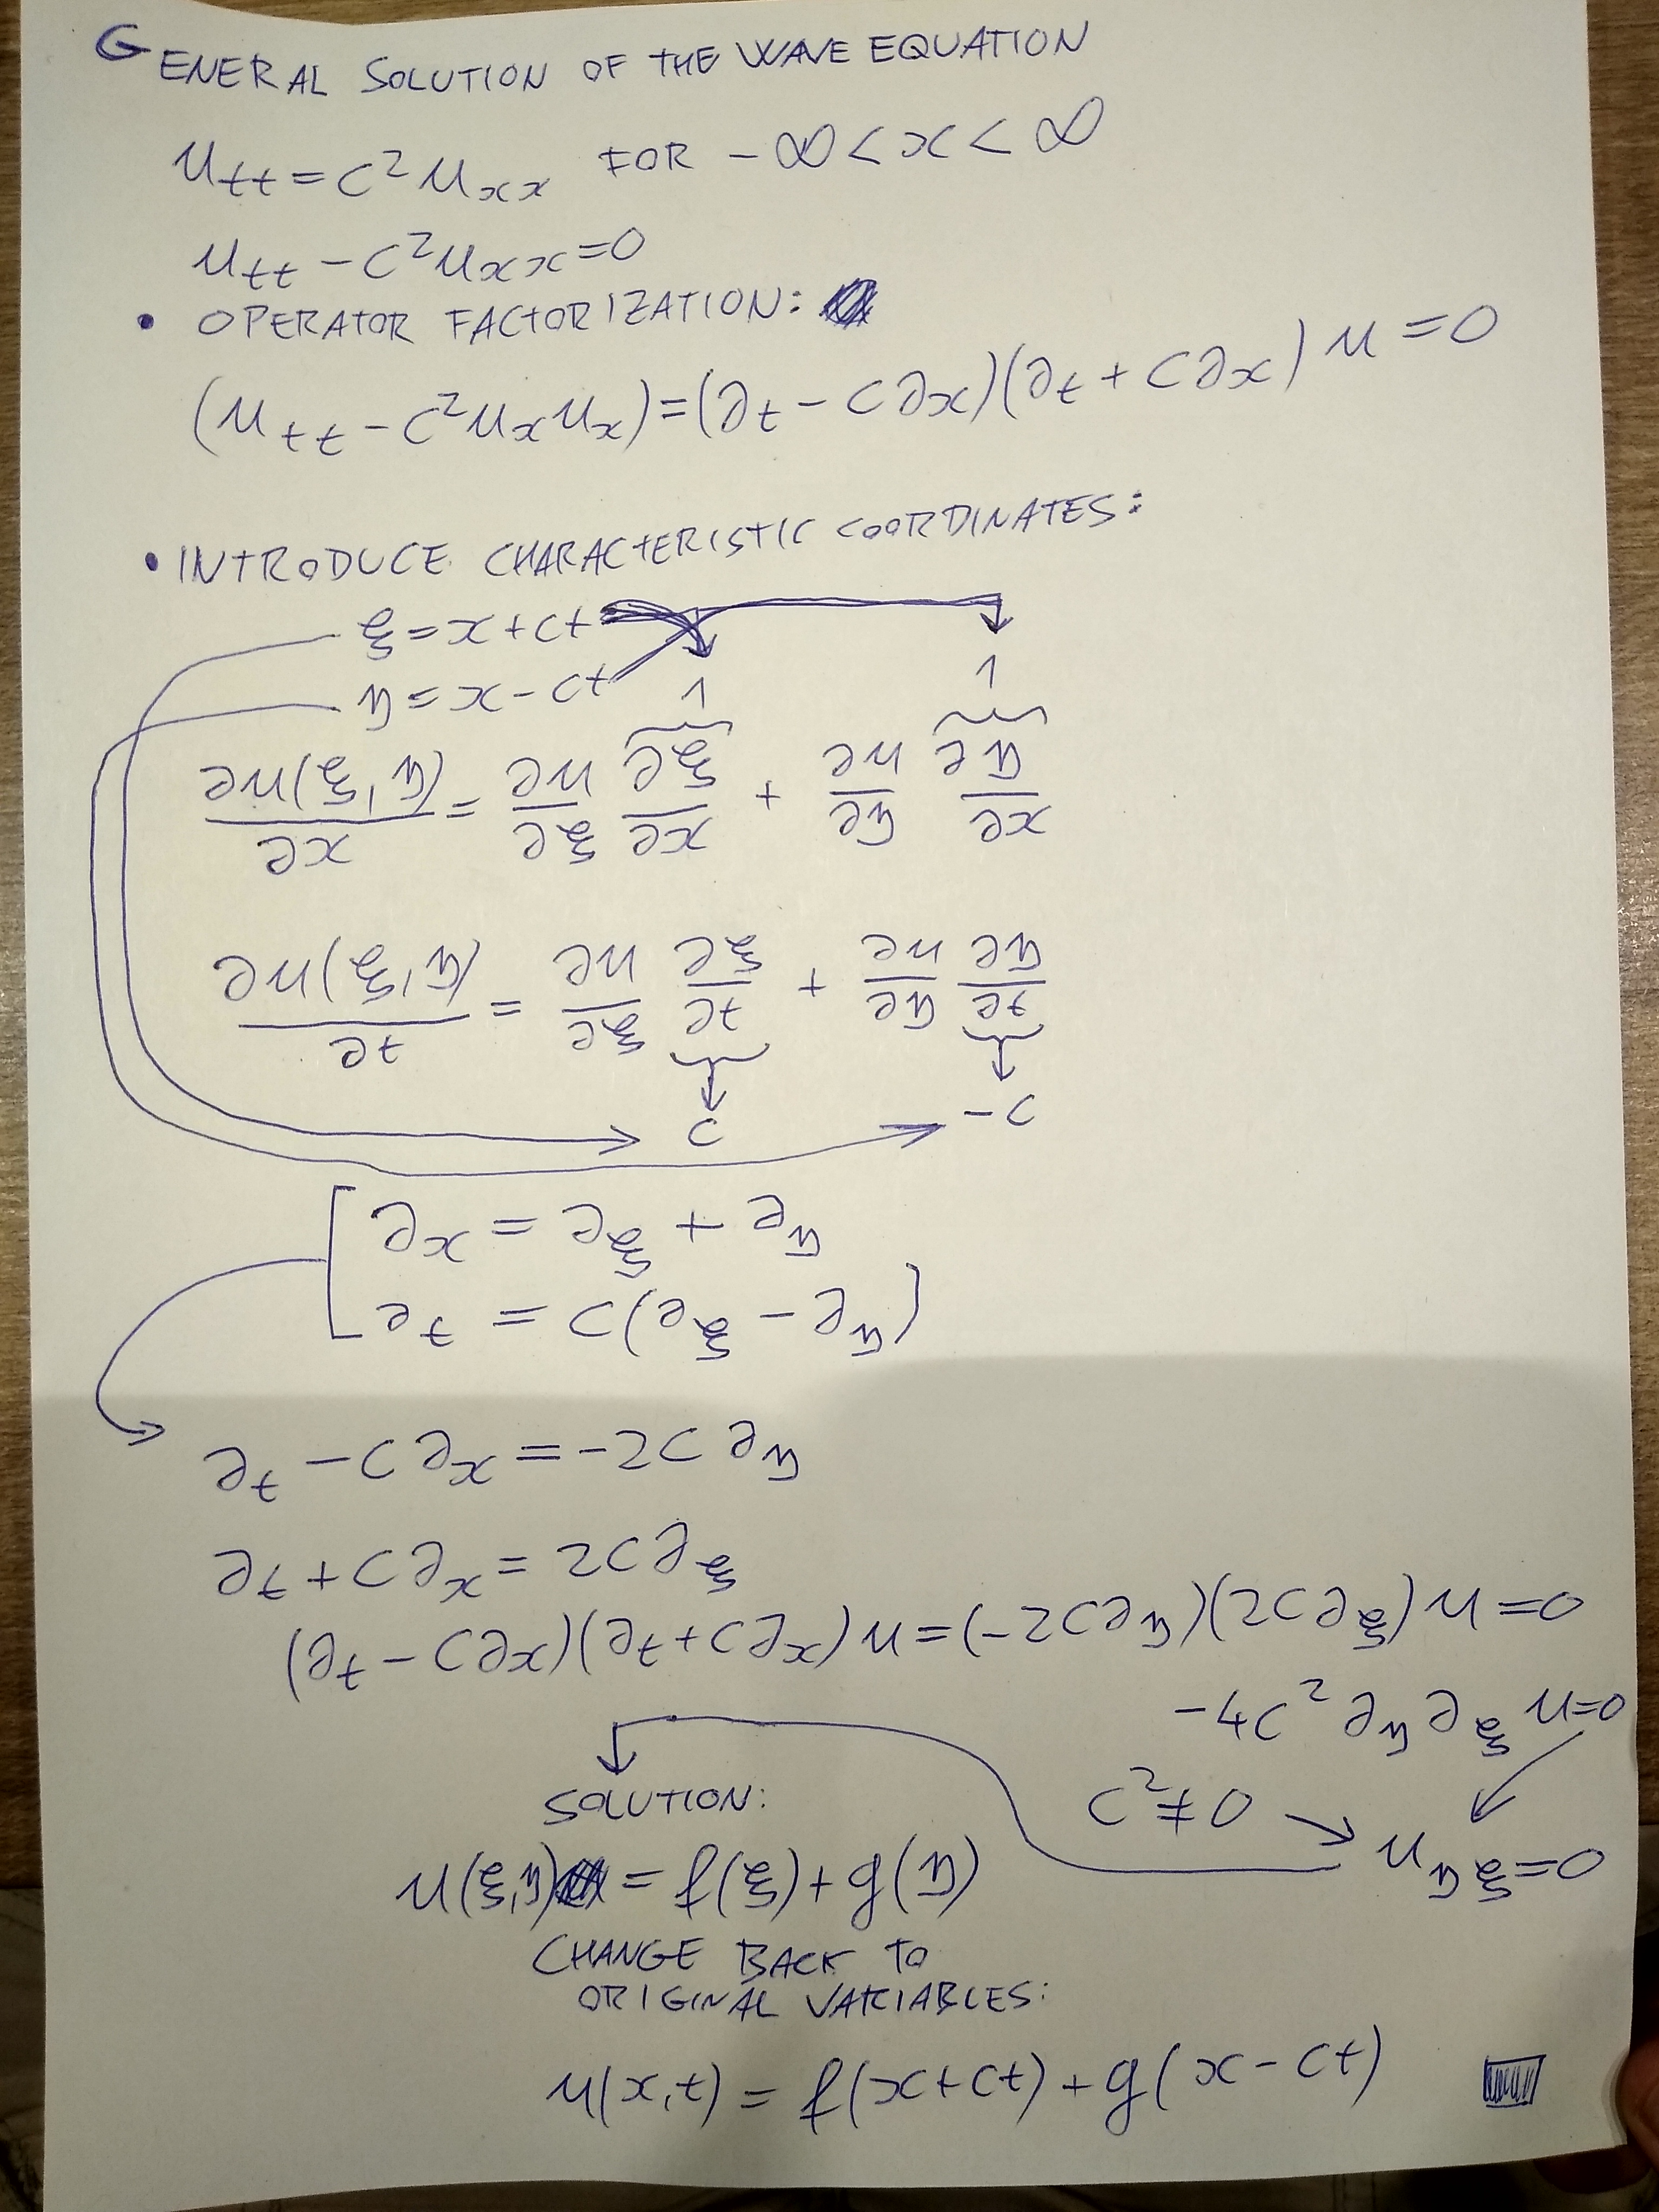 GENERAL SOLUTION OF THE WAVE EQUATION
u_tt = c² u_xx FOR -∞ < x < ∞
u_tt - c² u_xx = 0
• OPERATOR FACTORIZATION:
(u_tt - c² u_x u_x) = (∂_t - c∂_x)(∂_t + c∂_x) u = 0
• INTRODUCE CHARACTERISTIC COORDINATES:
ξ = x + ct
η = x - ct
1 1
∂u(ξ,η)/∂x = ∂u/∂ξ ∂ξ/∂x + ∂u/∂η ∂η/∂x
∂u(ξ,η)/∂t = ∂u/∂ξ ∂ξ/∂t + ∂u/∂η ∂η/∂t
c -c
∂_x = ∂_ξ + ∂_η
∂_t = c(∂_ξ - ∂_η)
∂_t - c∂_x = -2c ∂_η
∂_t + c∂_x = 2c∂_ξ
(∂_t - c∂_x)(∂_t + c∂_x) u = (-2c∂_η)(2c∂_ξ) u = 0
-4c² ∂_η ∂_ξ u = 0
c² ≠ 0 → u_ηξ = 0
SOLUTION:
u(ξ,η) = f(ξ) + g(η)
CHANGE BACK TO
ORIGINAL VARIABLES:
u(x,t) = f(x+ct) + g(x-ct)